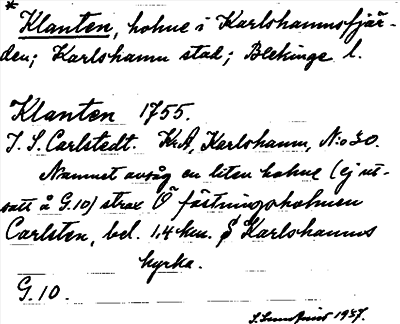 * Klanten, holme i Karlshamnsfjär-
den; Karlshamn stad; Blekinge l.
Klanten 1755.
J. S. Carlstedt. KrA, Karlshamn, N:o 30.
Namnet avsåg en liten holme (ej ut-
satt å G.10) strax Ö fästningsholmen
Carlsten, bel. 1,4 km. S Karlshamns
kyrka.
G.10.
S. Lundqvist 1937.